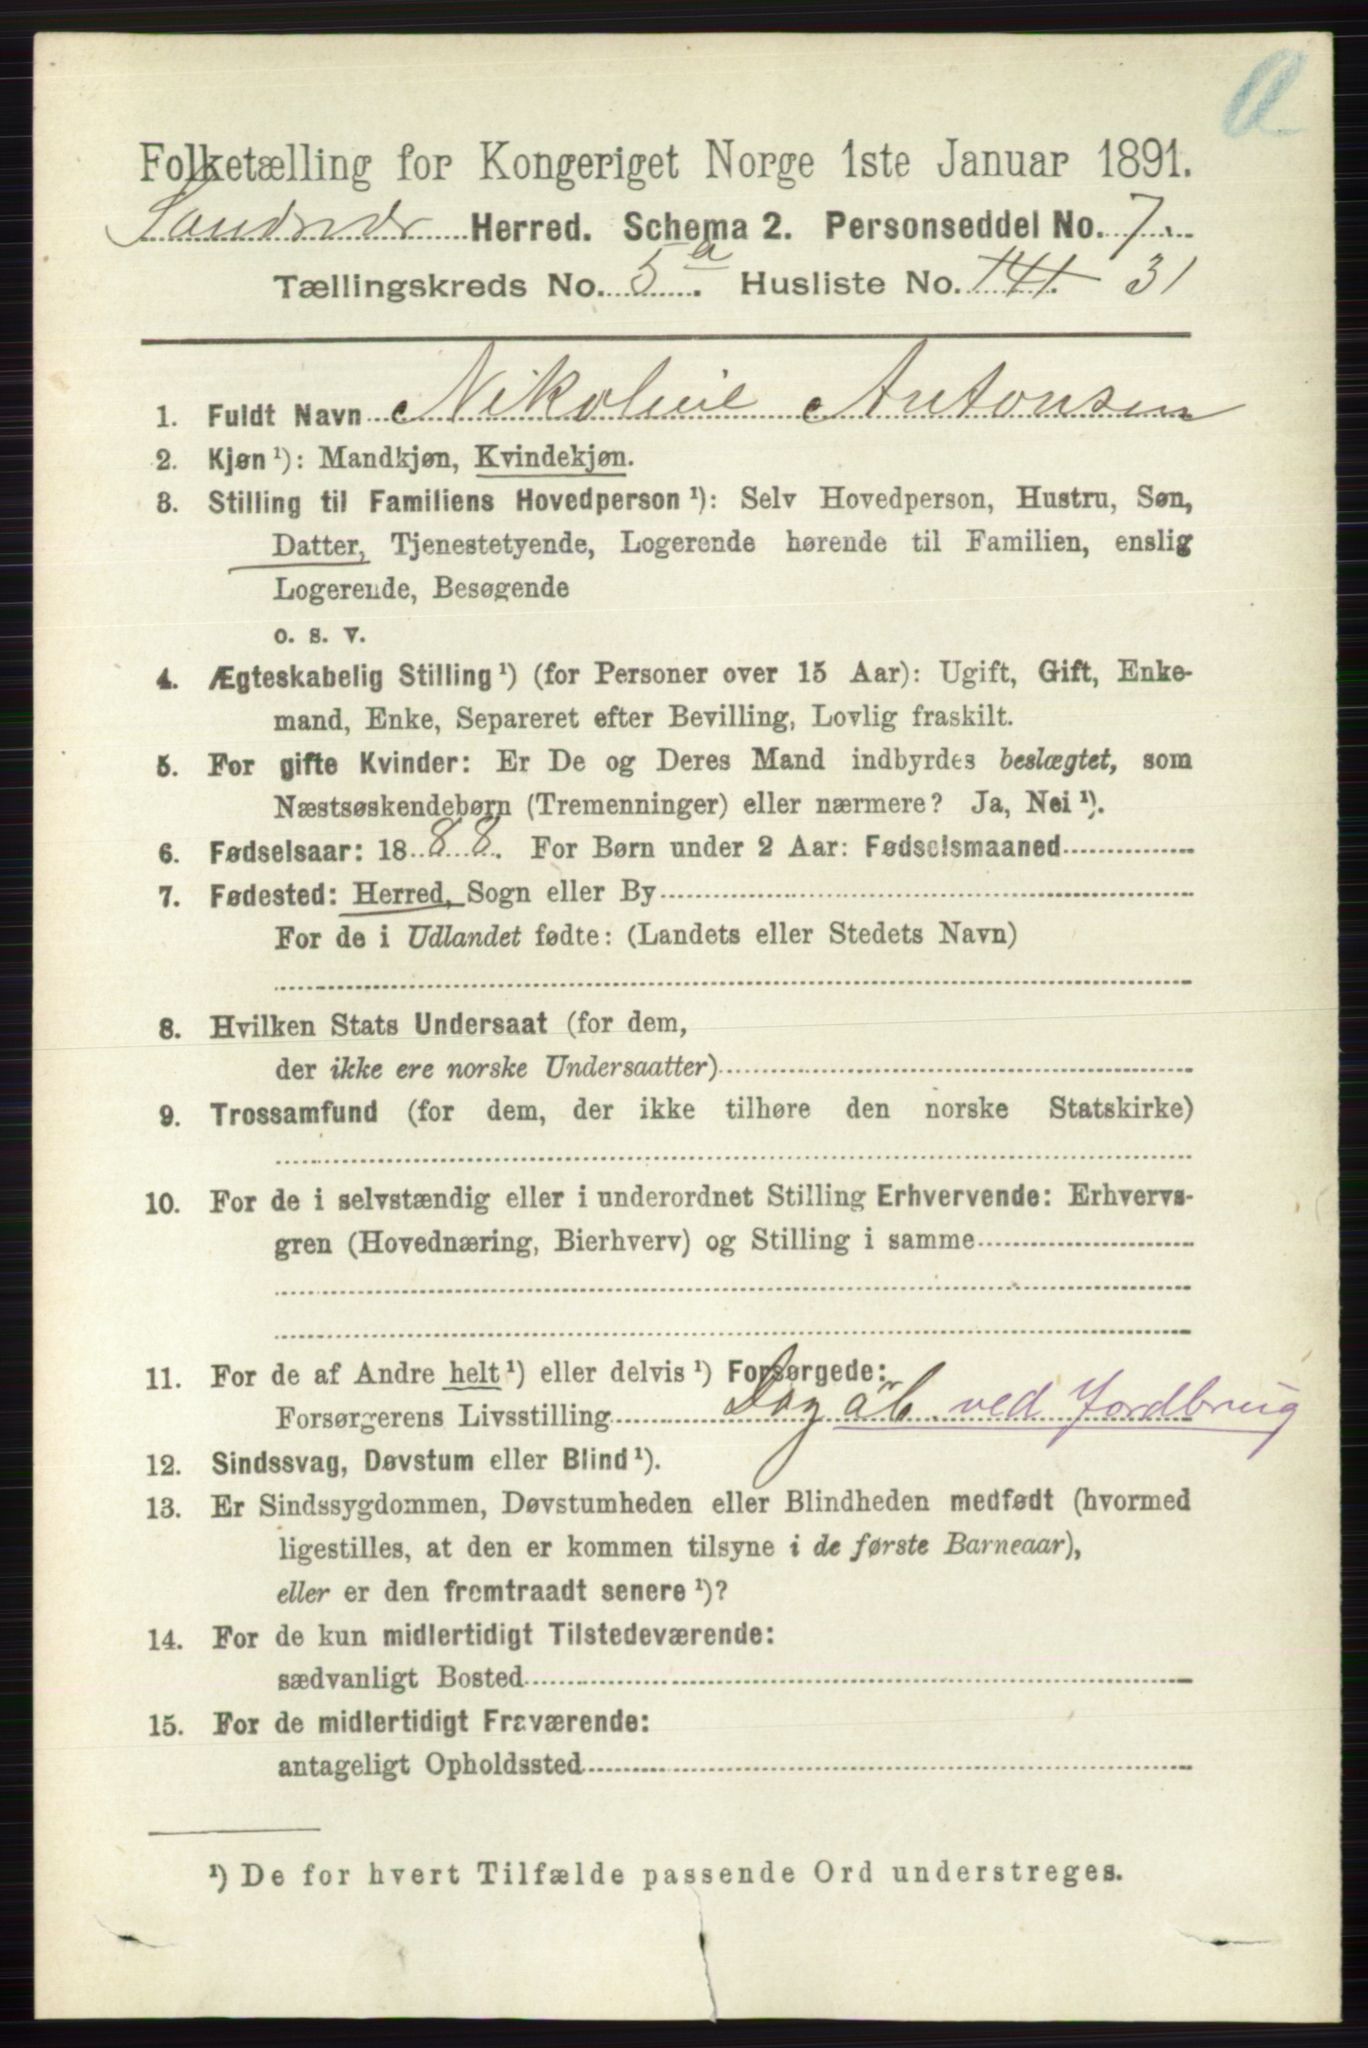 a
Folketælling for Kongeriget Norge 1ste Januar 1891.
Sandsvær Herred. Schema 2. Personseddel No. 7.
Tællingskreds No. 5 a. Husliste No. 141. 31
1. Fuldt Navn Nikoline Antonsen
2. Kjøn ¹): Mandkjøn, Kvindekjøn.
3. Stilling til Familiens Hovedperson ¹): Selv Hovedperson, Hustru, Søn,
Datter, Tjenestetyende, Logerende hørende til Familien, enslig
Logerende, Besøgende
o. s. v.
4. Ægteskabelig Stilling ¹) (for Personer over 15 Aar): Ugift, Gift, Enke-
mand, Enke, Separeret efter Bevilling, Lovlig fraskilt.
5. For gifte Kvinder: Er De og Deres Mand indbyrdes beslægtet, som
Næstsøskendebørn (Tremenninger) eller nærmere? Ja, Nei ¹).
6. Fødselsaar: 1888. For Børn under 2 Aar: Fødselsmaaned
7. Fødested: Herred, Sogn eller By
For de i Udlandet fødte: (Landets eller Stedets Navn)
8. Hvilken Stats Undersaat (for dem,
der ikke ere norske Undersaatter)
9. Trossamfund (for dem, der ikke tilhøre den norske Statskirke)
10. For de i selvstændig eller i underordnet Stilling Erhvervende: Erhvervs-
gren (Hovednæring, Bierhverv) og Stilling i samme
11. For de af Andre helt ¹) eller delvis ¹) Forsørgede:
Forsørgerens Livsstilling Dagarb. ved Jordbrug
12. Sindssvag, Døvstum eller Blind ¹).
13. Er Sindssygdommen, Døvstumheden eller Blindheden medfødt (hvormed
ligestilles, at den er kommen tilsyne i de første Barneaar),
eller er den fremtraadt senere ¹)?
14. For de kun midlertidigt Tilstedeværende:
sædvanligt Bosted
15. For de midlertidigt Fraværende:
antageligt Opholdssted
¹) De for hvert Tilfælde passende Ord understreges.